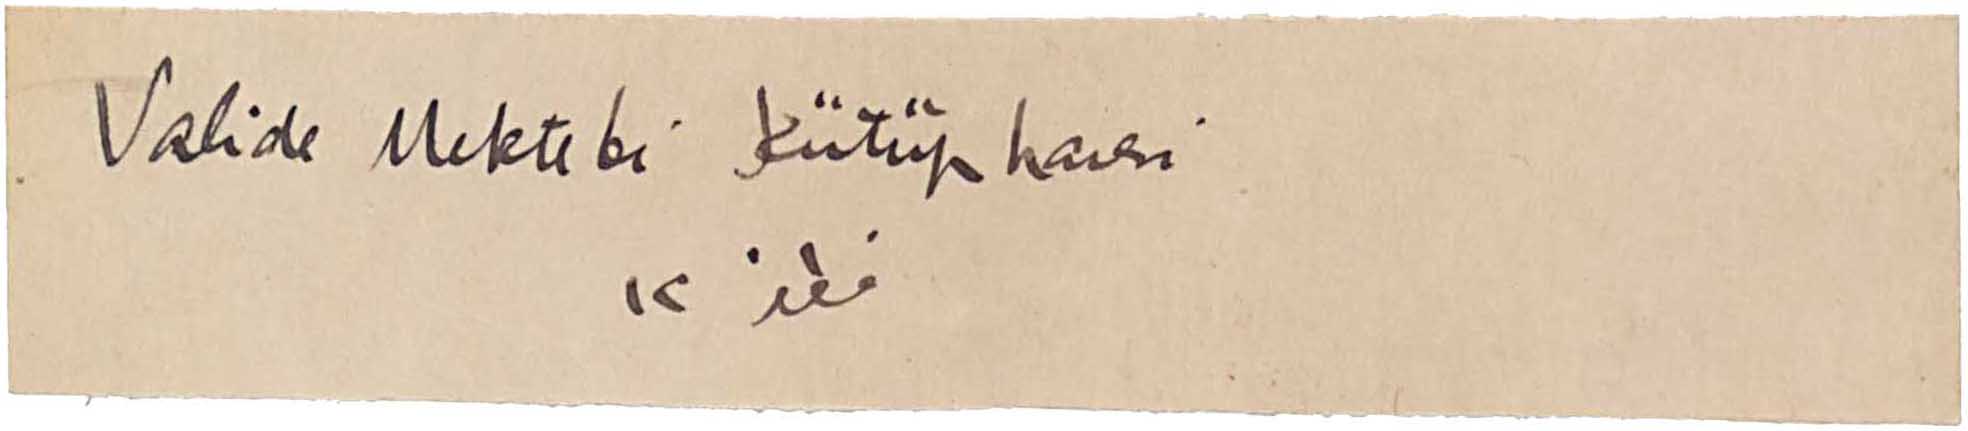 Valide Mektebi Kütüphanesi